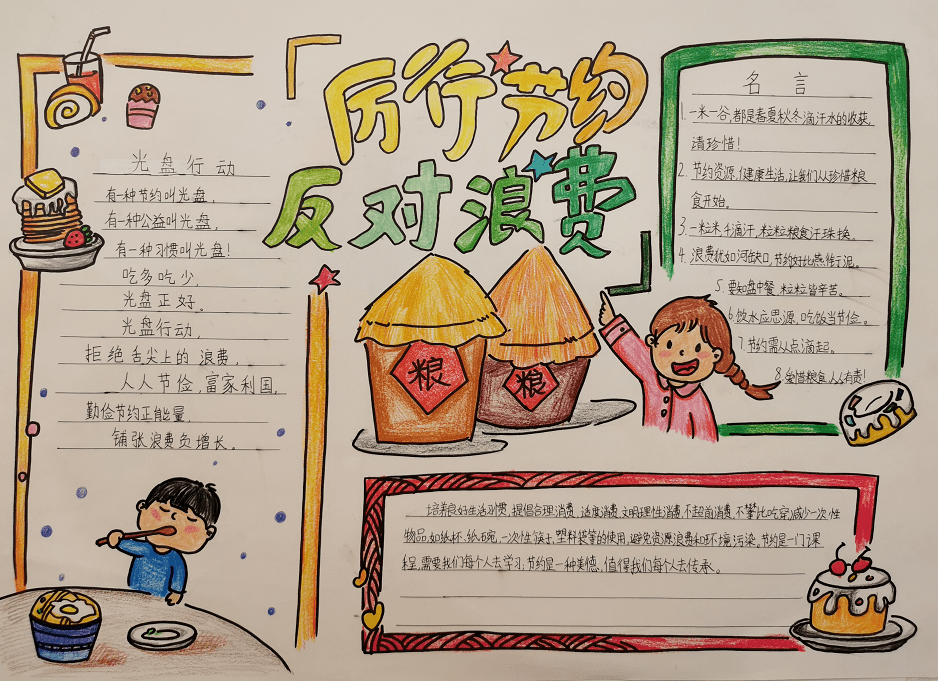 厉行节约
反对浪费
光盘行动
有一种节约叫光盘，
有一种公益叫光盘，
有一种习惯叫光盘！
吃多吃少，
光盘正好。
光盘行动，
拒绝舌尖上的浪费，
人人节俭，富家利国，
勤俭节约正能量，
铺张浪费负增长。
粮
粮
名言
1.一米一谷，都是春夏秋冬滴汗水的收获，
请珍惜！
2.节约资源，健康生活，让我们从珍惜粮
食开始。
3.一粒米，千滴汗，粒粒粮食汗珠换。
4.浪费犹如河缺口，节约好比燕衔泥。
5.要知盘中餐，粒粒皆辛苦。
6.饮水应思源，吃饭当节俭。
7.节约需从点滴起。
8.爱惜粮食，人人有责！
培养良好生活习惯，提倡合理消费，适度消费，文明理性消费，不超前消费，不攀比吃穿，减少一次性
物品，如纸杯，纸碗，一次性筷子，塑料袋等的使用，避免资源浪费和环境污染。节约是一门课
程，需要我们每个人去学习，节约是一种美德，值得我们每个人去传承。